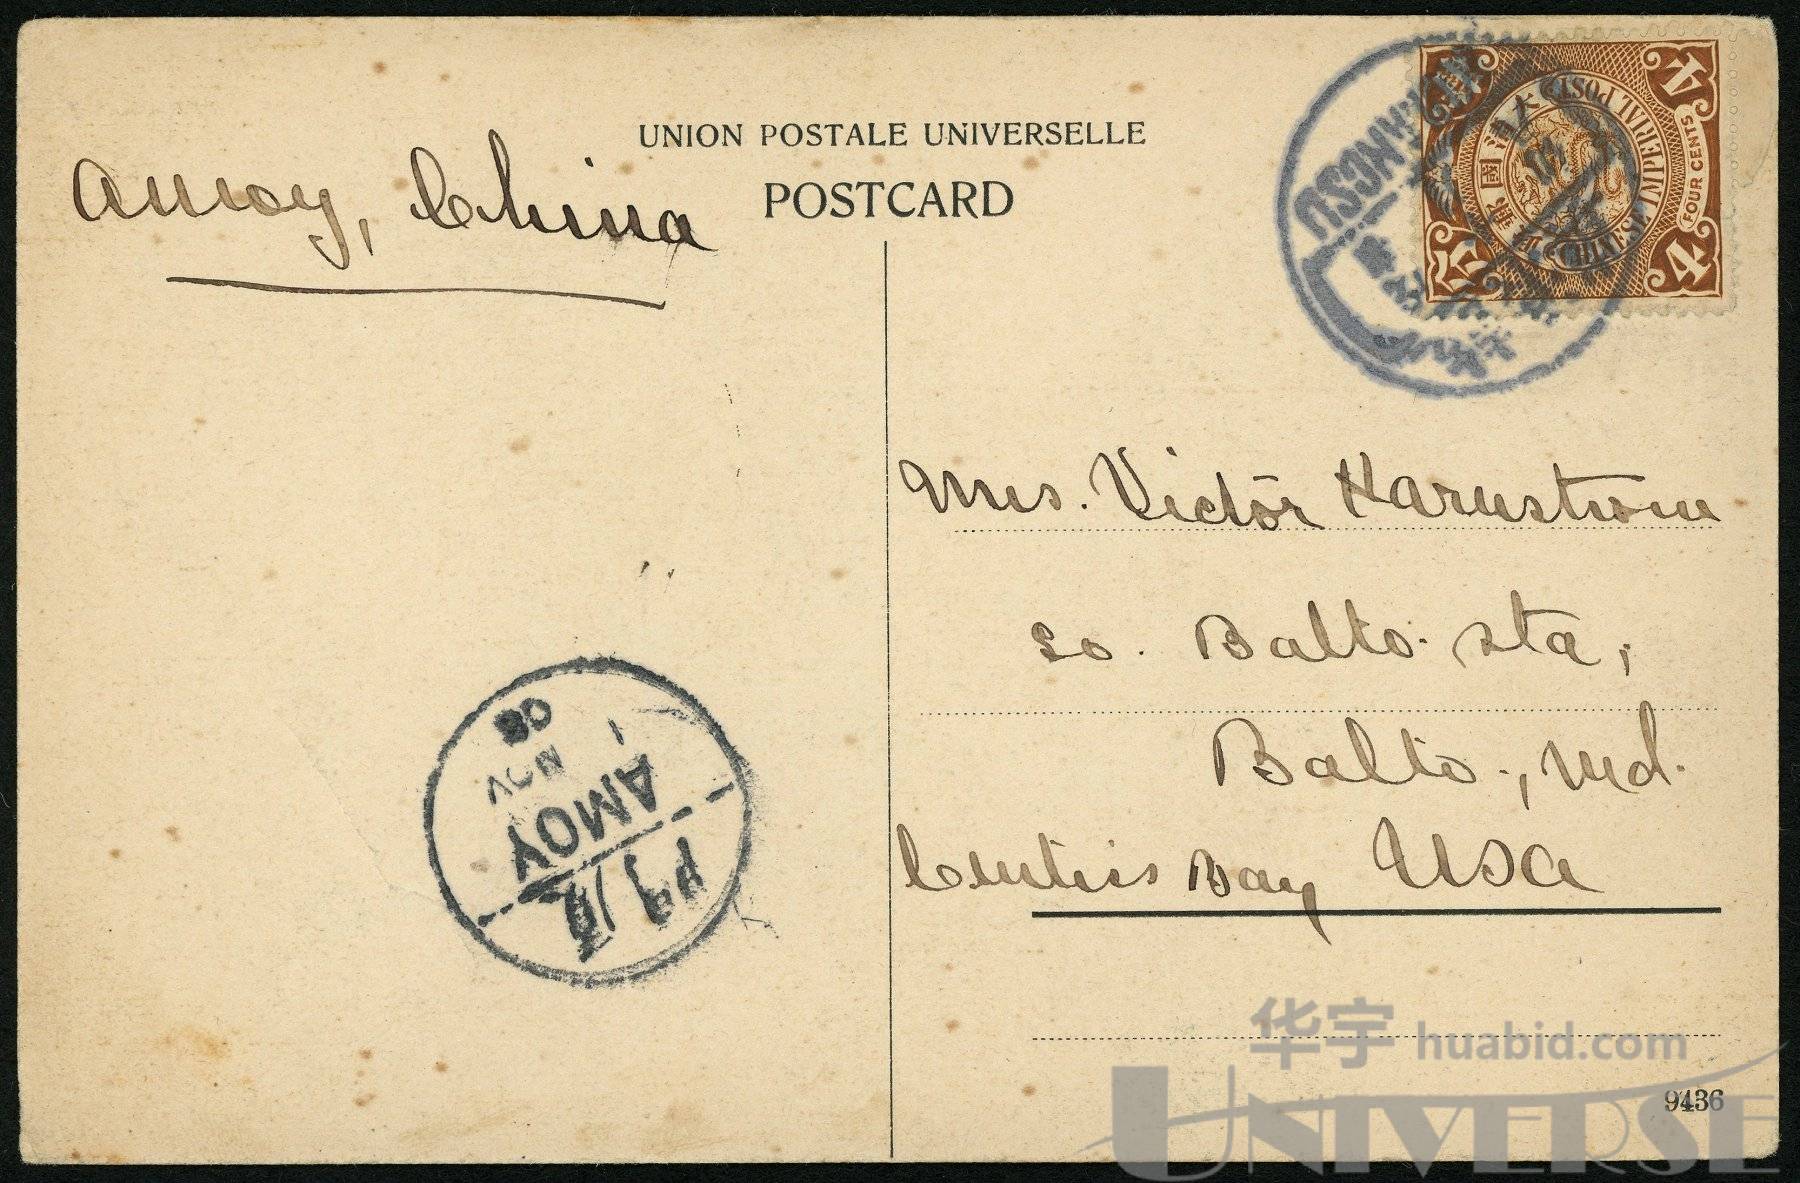 UNION POSTALE UNIVERSELLE
POSTCARD
Amoy, China
大清
國郵政
CHINESE IMPERIAL POST
FOUR CENTS
4
4
KIANGSU
Mrs. Victor Harnstrom
So. Balto. Sta,
Balto., Md.
Curtis Bay USA
08
1
NOV
AMOY
廈門
9436
华宇 huabid.com
UNIVERSE